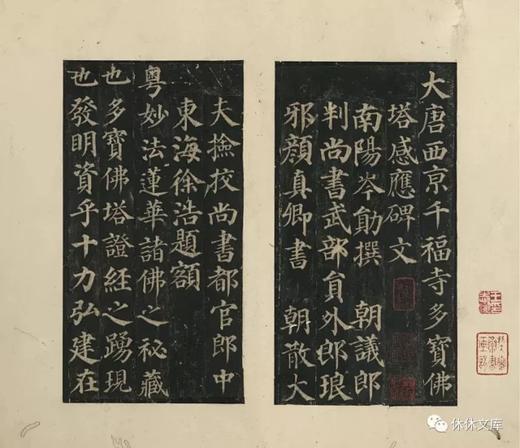 大唐西京千福寺多寶佛
塔感應碑文
南陽岑勛撰 朝議郎
判尚書武部員外郎琅
邪顏真卿書 朝散大
夫撿挍尚書都官郎中
東海徐浩題額
粵妙法蓮華諸佛之秘藏
也多寶佛塔證經之踴現
也發明資乎十力弘建在
休休文库